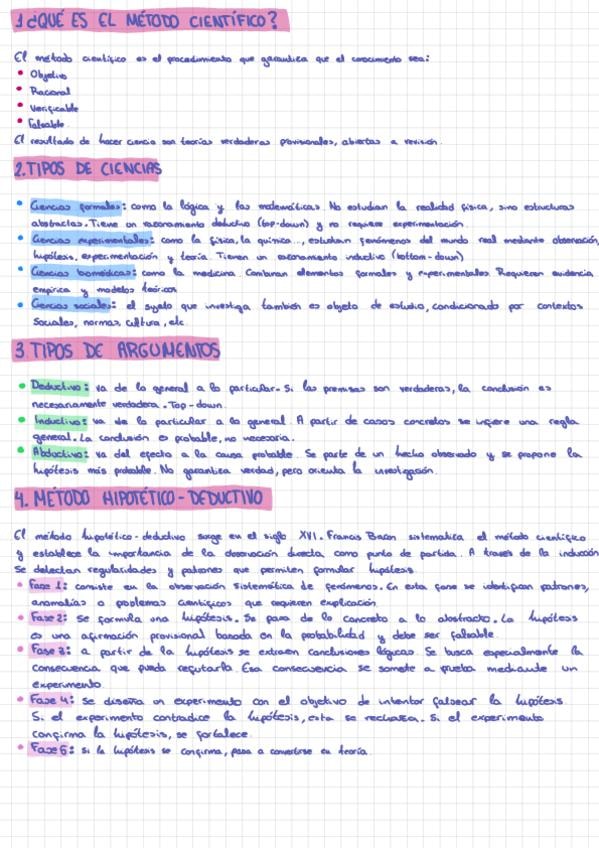 1. ¿QUÉ ES EL MÉTODO CIENTÍFICO?
El método científico es el procedimiento que garantiza que el conocimiento sea:
• Objetivo
• Racional
• Verificable
• Falsable.
El resultado de hacer ciencia son teorías verdaderas provisionales, abiertas a revisión.
2. TIPOS DE CIENCIAS
• Ciencias formales: como la lógica y las matemáticas. No estudian la realidad física, sino estructuras
abstractas. Tiene un razonamiento deductivo (top-down) y no requiere experimentación.
• Ciencias experimentales: como la física, la química..., estudian fenómenos del mundo real mediante observación,
hipótesis, experimentación y teoría. Tienen un razonamiento inductivo (bottom-down)
• Ciencias biomédicas: como la medicina. Combinan elementos formales y experimentales. Requieren evidencia
empírica y modelos teóricos
• Ciencias sociales: el sujeto que investiga también es objeto de estudio, condicionado por contextos
sociales, normas, cultura, etc.
3. TIPOS DE ARGUMENTOS
• Deductivo: va de lo general a lo particular. Si las premisas son verdaderas, la conclusión es
necesariamente verdadera. Top-down.
• Inductivo: va de lo particular a lo general. A partir de casos concretos se infiere una regla
general. La conclusión es probable, no necesaria.
• Abductivo: va del efecto a la causa probable. Se parte de un hecho observado y se propone la
hipótesis más probable. No garantiza verdad, pero orienta la investigación.
4. MÉTODO HIPOTÉTICO-DEDUCTIVO
El método hipotético-deductivo surge en el siglo XVI. Francis Bacon sistematiza el método científico
y establece la importancia de la observación directa como punto de partida. A través de la inducción
se detectan regularidades y patrones que permiten formular hipótesis.
• Fase 1: consiste en la observación sistemática de fenómenos. En esta fase se identifican patrones,
anomalías o problemas científicos que requieren explicación.
• Fase 2: se formula una hipótesis. Se pasa de lo concreto a lo abstracto. La hipótesis
es una afirmación provisional basada en la probabilidad y debe ser falsable.
• Fase 3: a partir de la hipótesis se extraen conclusiones lógicas. Se busca especialmente la
consecuencia que pueda refutarla. Esa consecuencia se somete a prueba mediante un
experimento.
• Fase 4: se diseña un experimento con el objetivo de intentar falsear la hipótesis.
Si el experimento contradice la hipótesis, esta se rechaza. Si el experimento
confirma la hipótesis, se fortalece.
• Fase 5: si la hipótesis se confirma, pasa a convertirse en teoría.